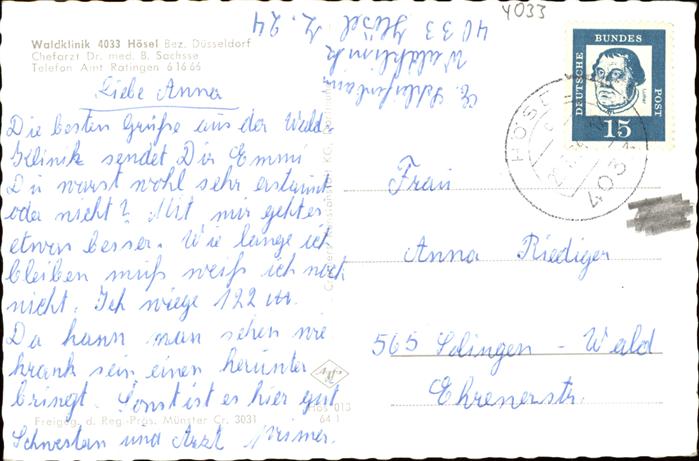 4033
Waldklinik 4033 Hösel Bez. Düsseldorf
Chefarzt Dr. med. B. Sachsse
Telefon Amt Ratingen 6 16 65
Liebe Anna
Die besten Grüße aus der Wald-
klinik sendet Dir Emmi
Du warst wohl sehr erstaunt
oder nicht? Mit mir geht es
etwas besser. Wie lange ich
bleiben muß weiß ich noch
nicht. Ich wiege 122
Da kann man sehen wie
krank sein einen herunter
bringt. Sonst ist es hier gut
Schwestern und Arzt prima.
Freigeg. d. Reg.-Präs. Münster Cr. 3031
Hös 013
64 1
Waldklinik
4033 Hösel
Z. 24
DEUTSCHE BUNDES POST
Luther
15
HÖSEL
4033
Frau
Anna Riediger
565 Solingen - Wald
Ehrenerstr.